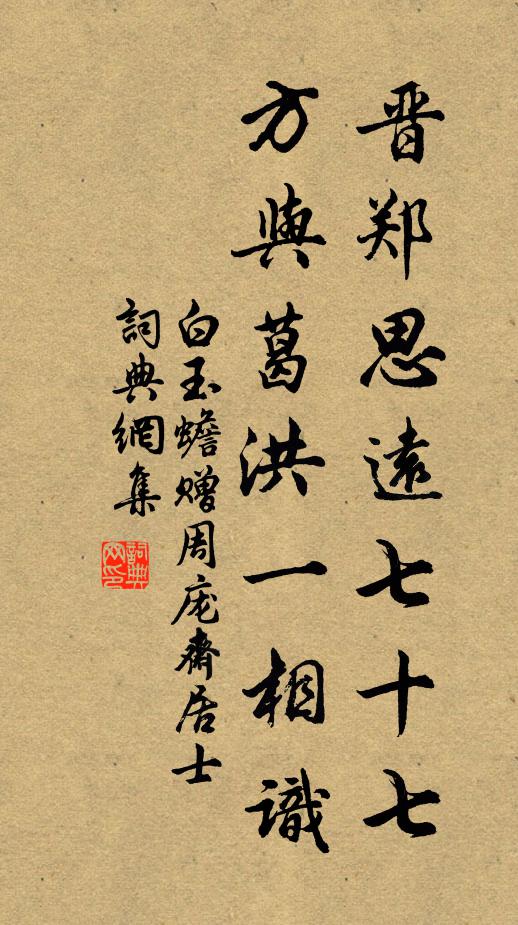 晋郑思遠七十七
方與葛洪一相識
白玉蟾赠周庞齋居士
詞典網集
詞典网印